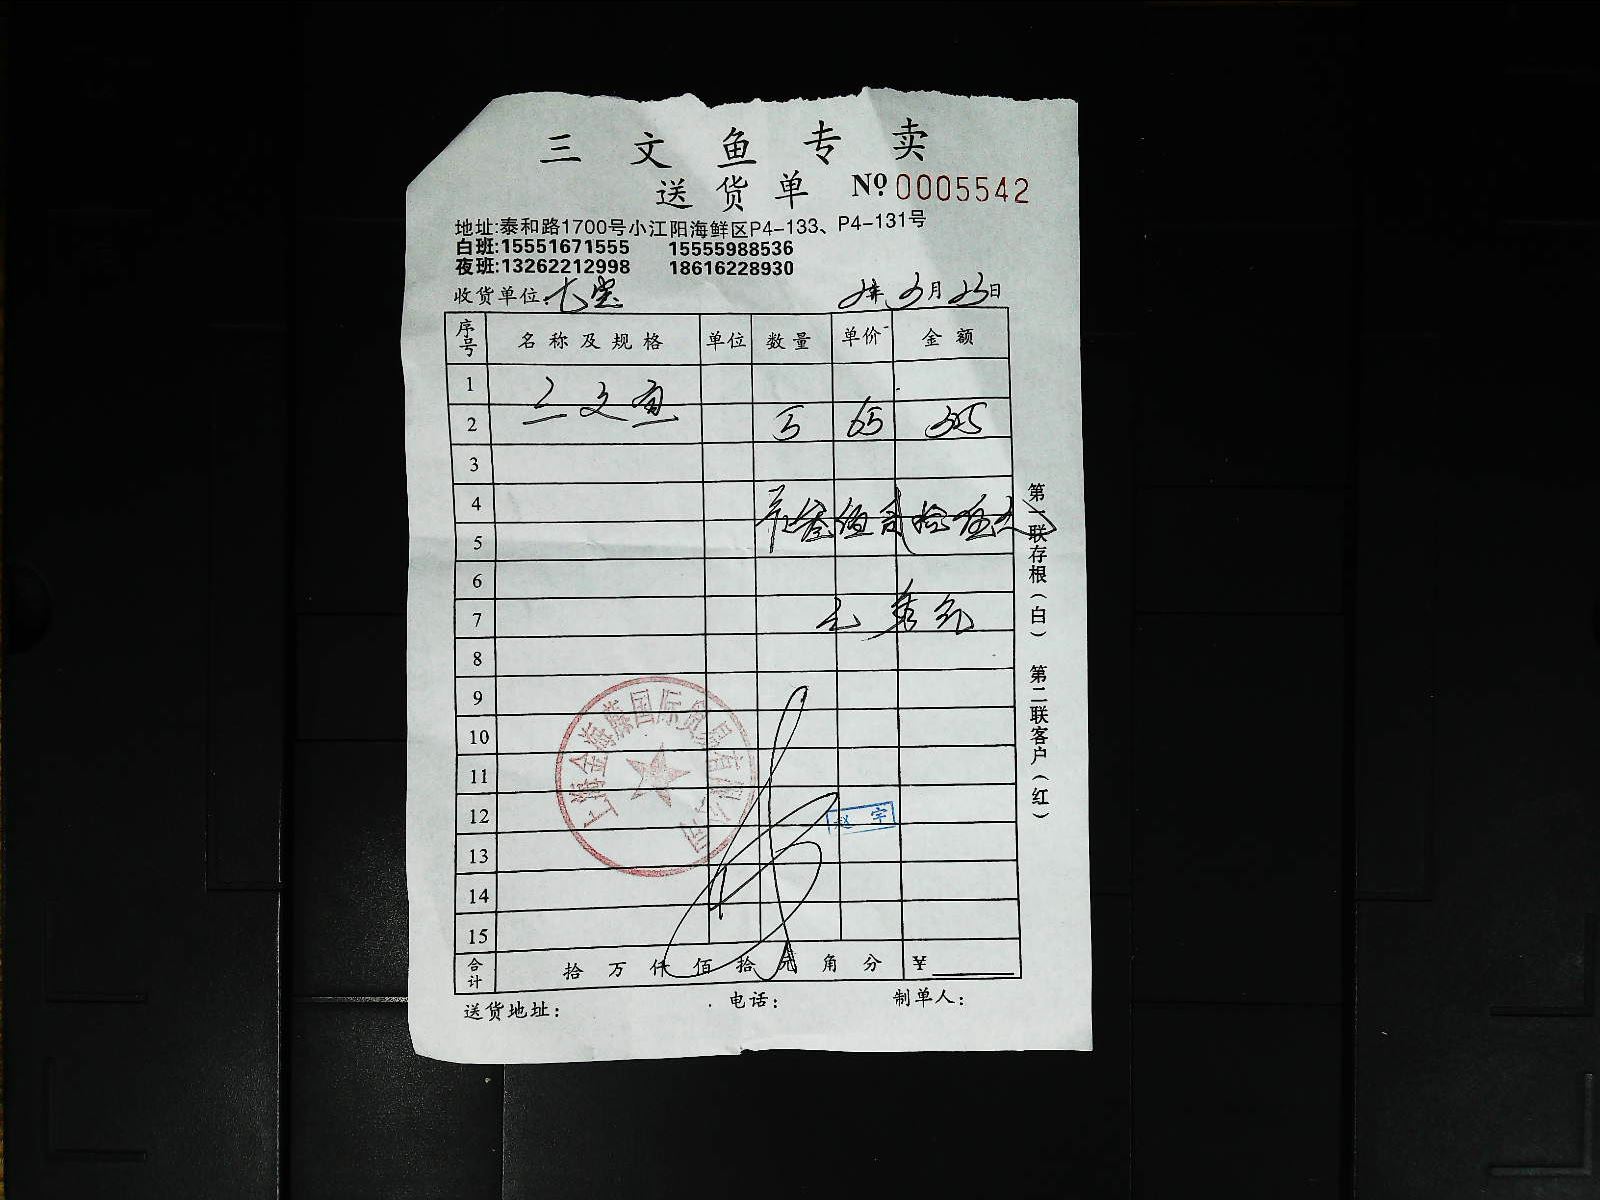 三文鱼专卖
送货单 № 0005542
地址:泰和路1700号小江阳海鲜区P4-133、P4-131号
白班:15551671555 15555988536
夜班:13262212998 18616228930
收货单位: 年 月 23日
序号 名称及规格 单位 数量 单价 金额
1 三文鱼
2 5 65 325
3
4
叁佰贰拾伍元
5
6
7
8
9
10
11
12
13
14
15
上海金海麻国际贸易有限公司
赵宇
合计 拾 万 仟 佰 拾 元 角 分 ¥
送货地址: 电话: 制单人:
第一联存根(白) 第二联客户(红)